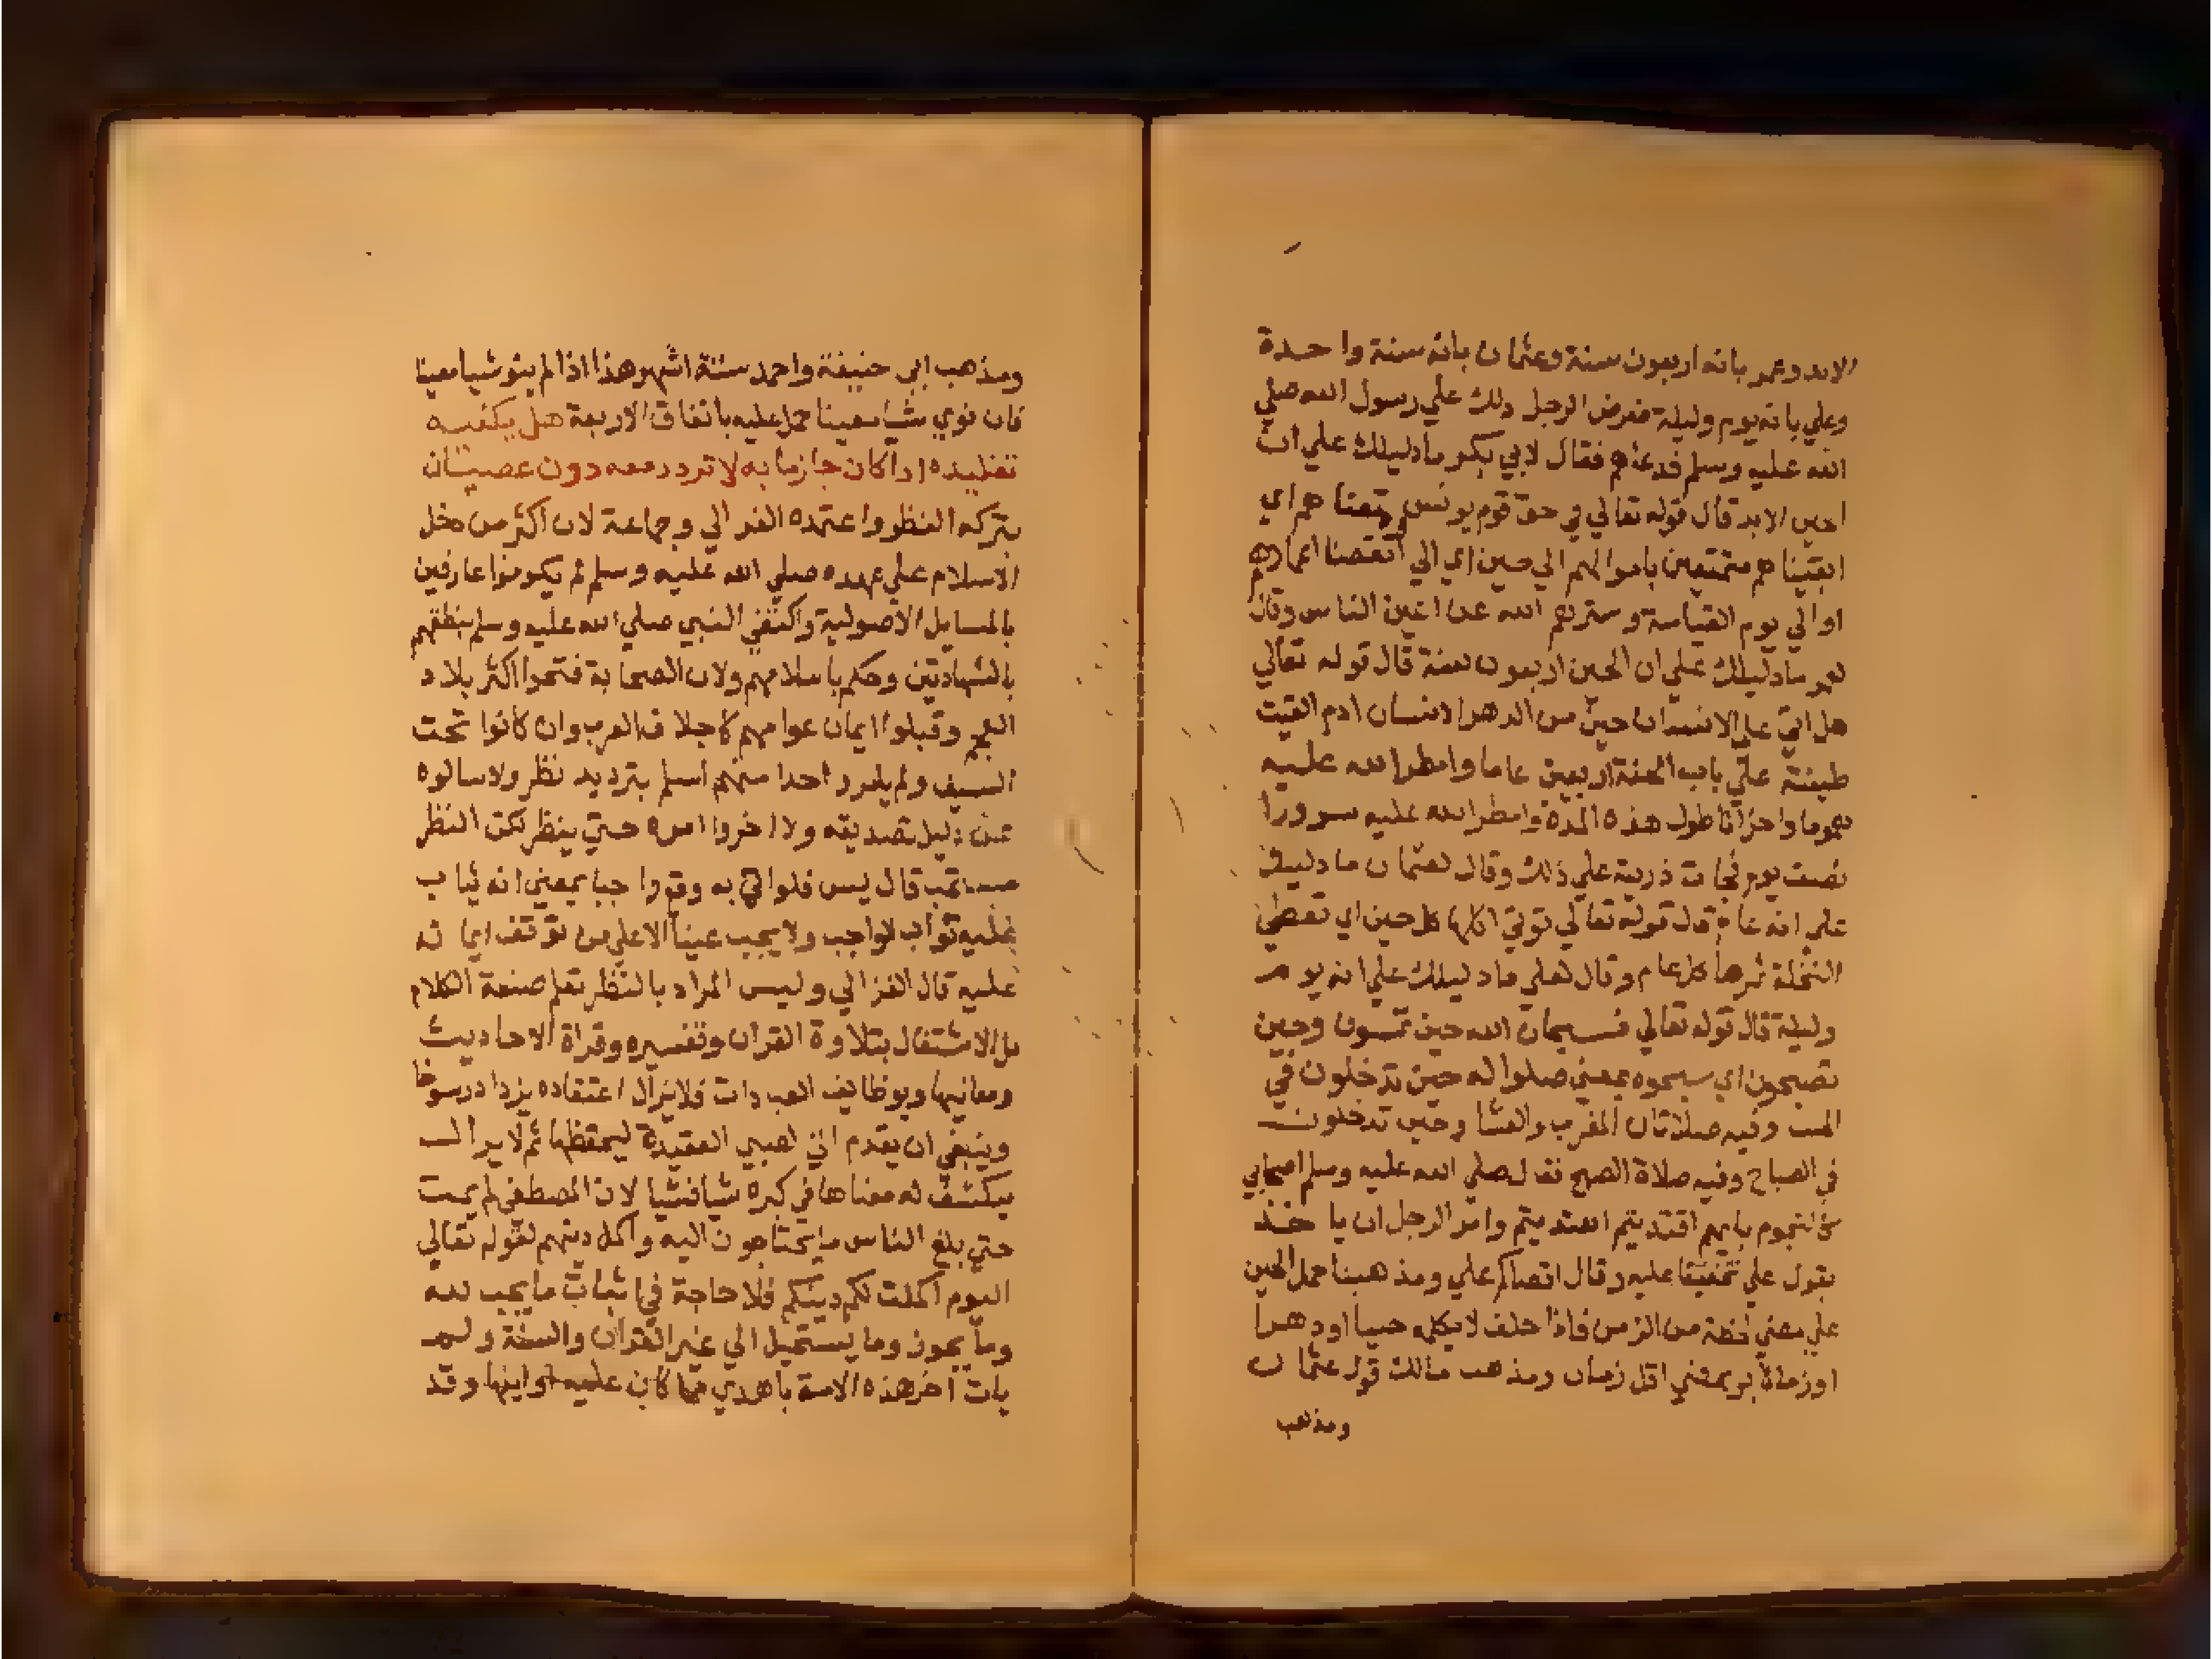 الابد وعمر بانه اربعون سنة وعثمان بانه سنة واحدة
وعلي بانه يوم وليلة فعرض الرجل ذلك علي رسول الله صلي
الله عليه وسلم فدعاهم فقال لابي بكر ما دليلك علي ان
الحين الابد قال قوله تعالي في حق قوم يونس ومتعناهم اي
ابقيناهم متمتعين باموالهم الي حين اي الي انقضا اعمارهم
او الي يوم القيامة وسترهم الله عن اعين الناس وقال
لعمر ما دليلك علي ان الحين اربعون سنة قال قوله تعالي
هل اتي علي الانسان حين من الدهر الانسان ادم القيت
طينته علي باب الجنة اربعين عاما وامطر الله عليه
هموما واحزانا طول هذه المدة وامطر الله عليه سرورا
نصف يوم فجات ذريته علي ذلك وقال لعثمان ما دليلك
علي انه عام قال قوله تعالي توتي اكلها كل حين اي تعطي
النخلة ثمرها كل عام وقال لعلي ما دليلك علي انه يوم
وليلة قال قوله تعالي فسبحان الله حين تمسون وحين
تصبحون اي سبحوه بمعني صلوا له حين تدخلون في
المسا وفيه صلاتان المغرب والعشا وحين تدخلون
في الصباح وفيه صلاة الصبح فقال صلي الله عليه وسلم اصحابي
كالنجوم بايهم اقتديتم اهتديتم وامر الرجل ان ياخذ
بقول علي تخفيفا عليه وقال اقضاكم علي ومذهبنا حمل الحين
علي معني لحظة من الزمن فاذا حلف لا يكلمه حينا او دهرا
او زمانا بر بمضي اقل زمان ومذهب مالك قول عثمان
ومذهب
ومذهب ابي حنيفة واحمد ستة اشهر وهذا اذا لم ينو شيا معينا
فان نوي شيا معينا حمل عليه باتفاق الاربعة هل يكفيه
تقليده اذا كان جازما به لا تردد معه دون عصيان
بتركه النظر واعتمده الغزالي وجماعة لان اكثر من دخل
الاسلام علي عهده صلي الله عليه وسلم لم يكونوا عارفين
بالمسايل الاصولية واكتفي النبي صلي الله عليه وسلم بنطقهم
بالشهادتين وحكم باسلامهم ولان الصحابة فتحوا اكثر بلاد
العجم وقبلوا ايمان عوامهم كاجلاف العرب وان كانوا تحت
السيف ولم يامروا احدا منهم اسلم بترديد نظر ولا سالوه
عن دليل تصديقه ولا اخروا امره حتي ينظر لكن النظر
مستحب قال يس فلو اتي به وقع واجبا بمعني انه يثاب
عليه ثواب الواجب ولا يجب عينا الا علي من توقف ايمانه
عليه قال الغزالي وليس المراد بالنظر تعلم صنعة الكلام
بل الاشتغال بتلاوة القران وتفسيره وقراة الاحاديث
ومعانيها وبوظايف العبادات فلا يزال اعتقاده يزداد رسوخا
وينبغي ان يقدم الي الصبي العقيدة ليحفظها ثم لا يزال
ينكشف له معناها في كبره شيا فشيا لان المصطفي لم يمت
حتي بلغ الناس ما يحتاجون اليه واكمل دينهم لقوله تعالي
اليوم اكملت لكم دينكم فلا حاجة في اثبات ما يجب لله
وما يجوز وما يستحيل الي غير القران والسنة ولم
يات اخر هذه الامة باهدي مما كان عليه اوايلها وقد